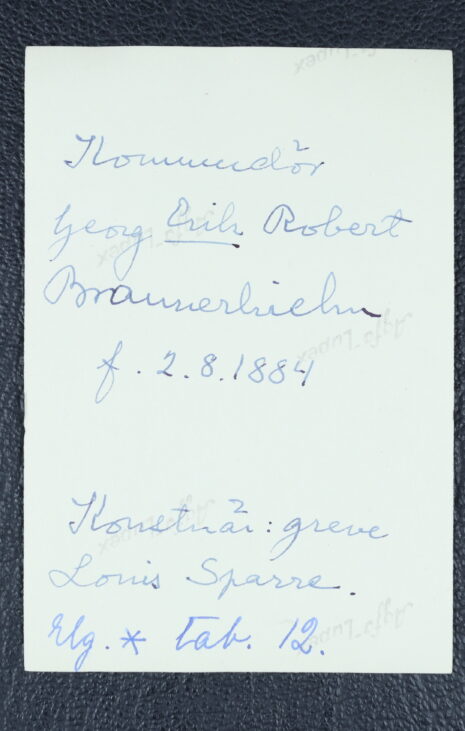 Kommendör
Georg Erik Robert
Braunerhielm
f. 2.8.1884
Konstnär: greve
Louis Sparre.
Elg. * tab. 12.
Agfa Lupex
Agfa Lupex
Agfa Lupex
Agfa Lupex
Agfa Lupex